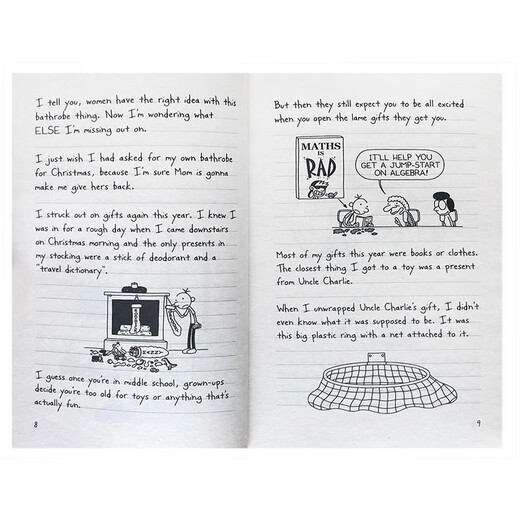 I tell you, women have the right idea with this
bathrobe thing. Now I'm wondering what
ELSE I'm missing out on.
I just wish I had asked for my own bathrobe
for Christmas, because I'm sure Mom is gonna
make me give hers back.
I struck out on gifts again this year. I knew I
was in for a rough day when I came downstairs
on Christmas morning and the only presents in
my stocking were a stick of deodorant and a
"travel dictionary".
I guess once you're in middle school, grown-ups
decide you're too old for toys or anything that's
actually fun.
8
But then they still expect you to be all excited
when you open the lame gifts they get you.
MATHS
IS
"RAD"
IT'LL HELP YOU
GET A JUMP-START
ON ALGEBRA!
Most of my gifts this year were books or clothes.
The closest thing I got to a toy was a present
from Uncle Charlie.
When I unwrapped Uncle Charlie's gift, I didn't
even know what it was supposed to be. It was
this big plastic ring with a net attached to it.
9